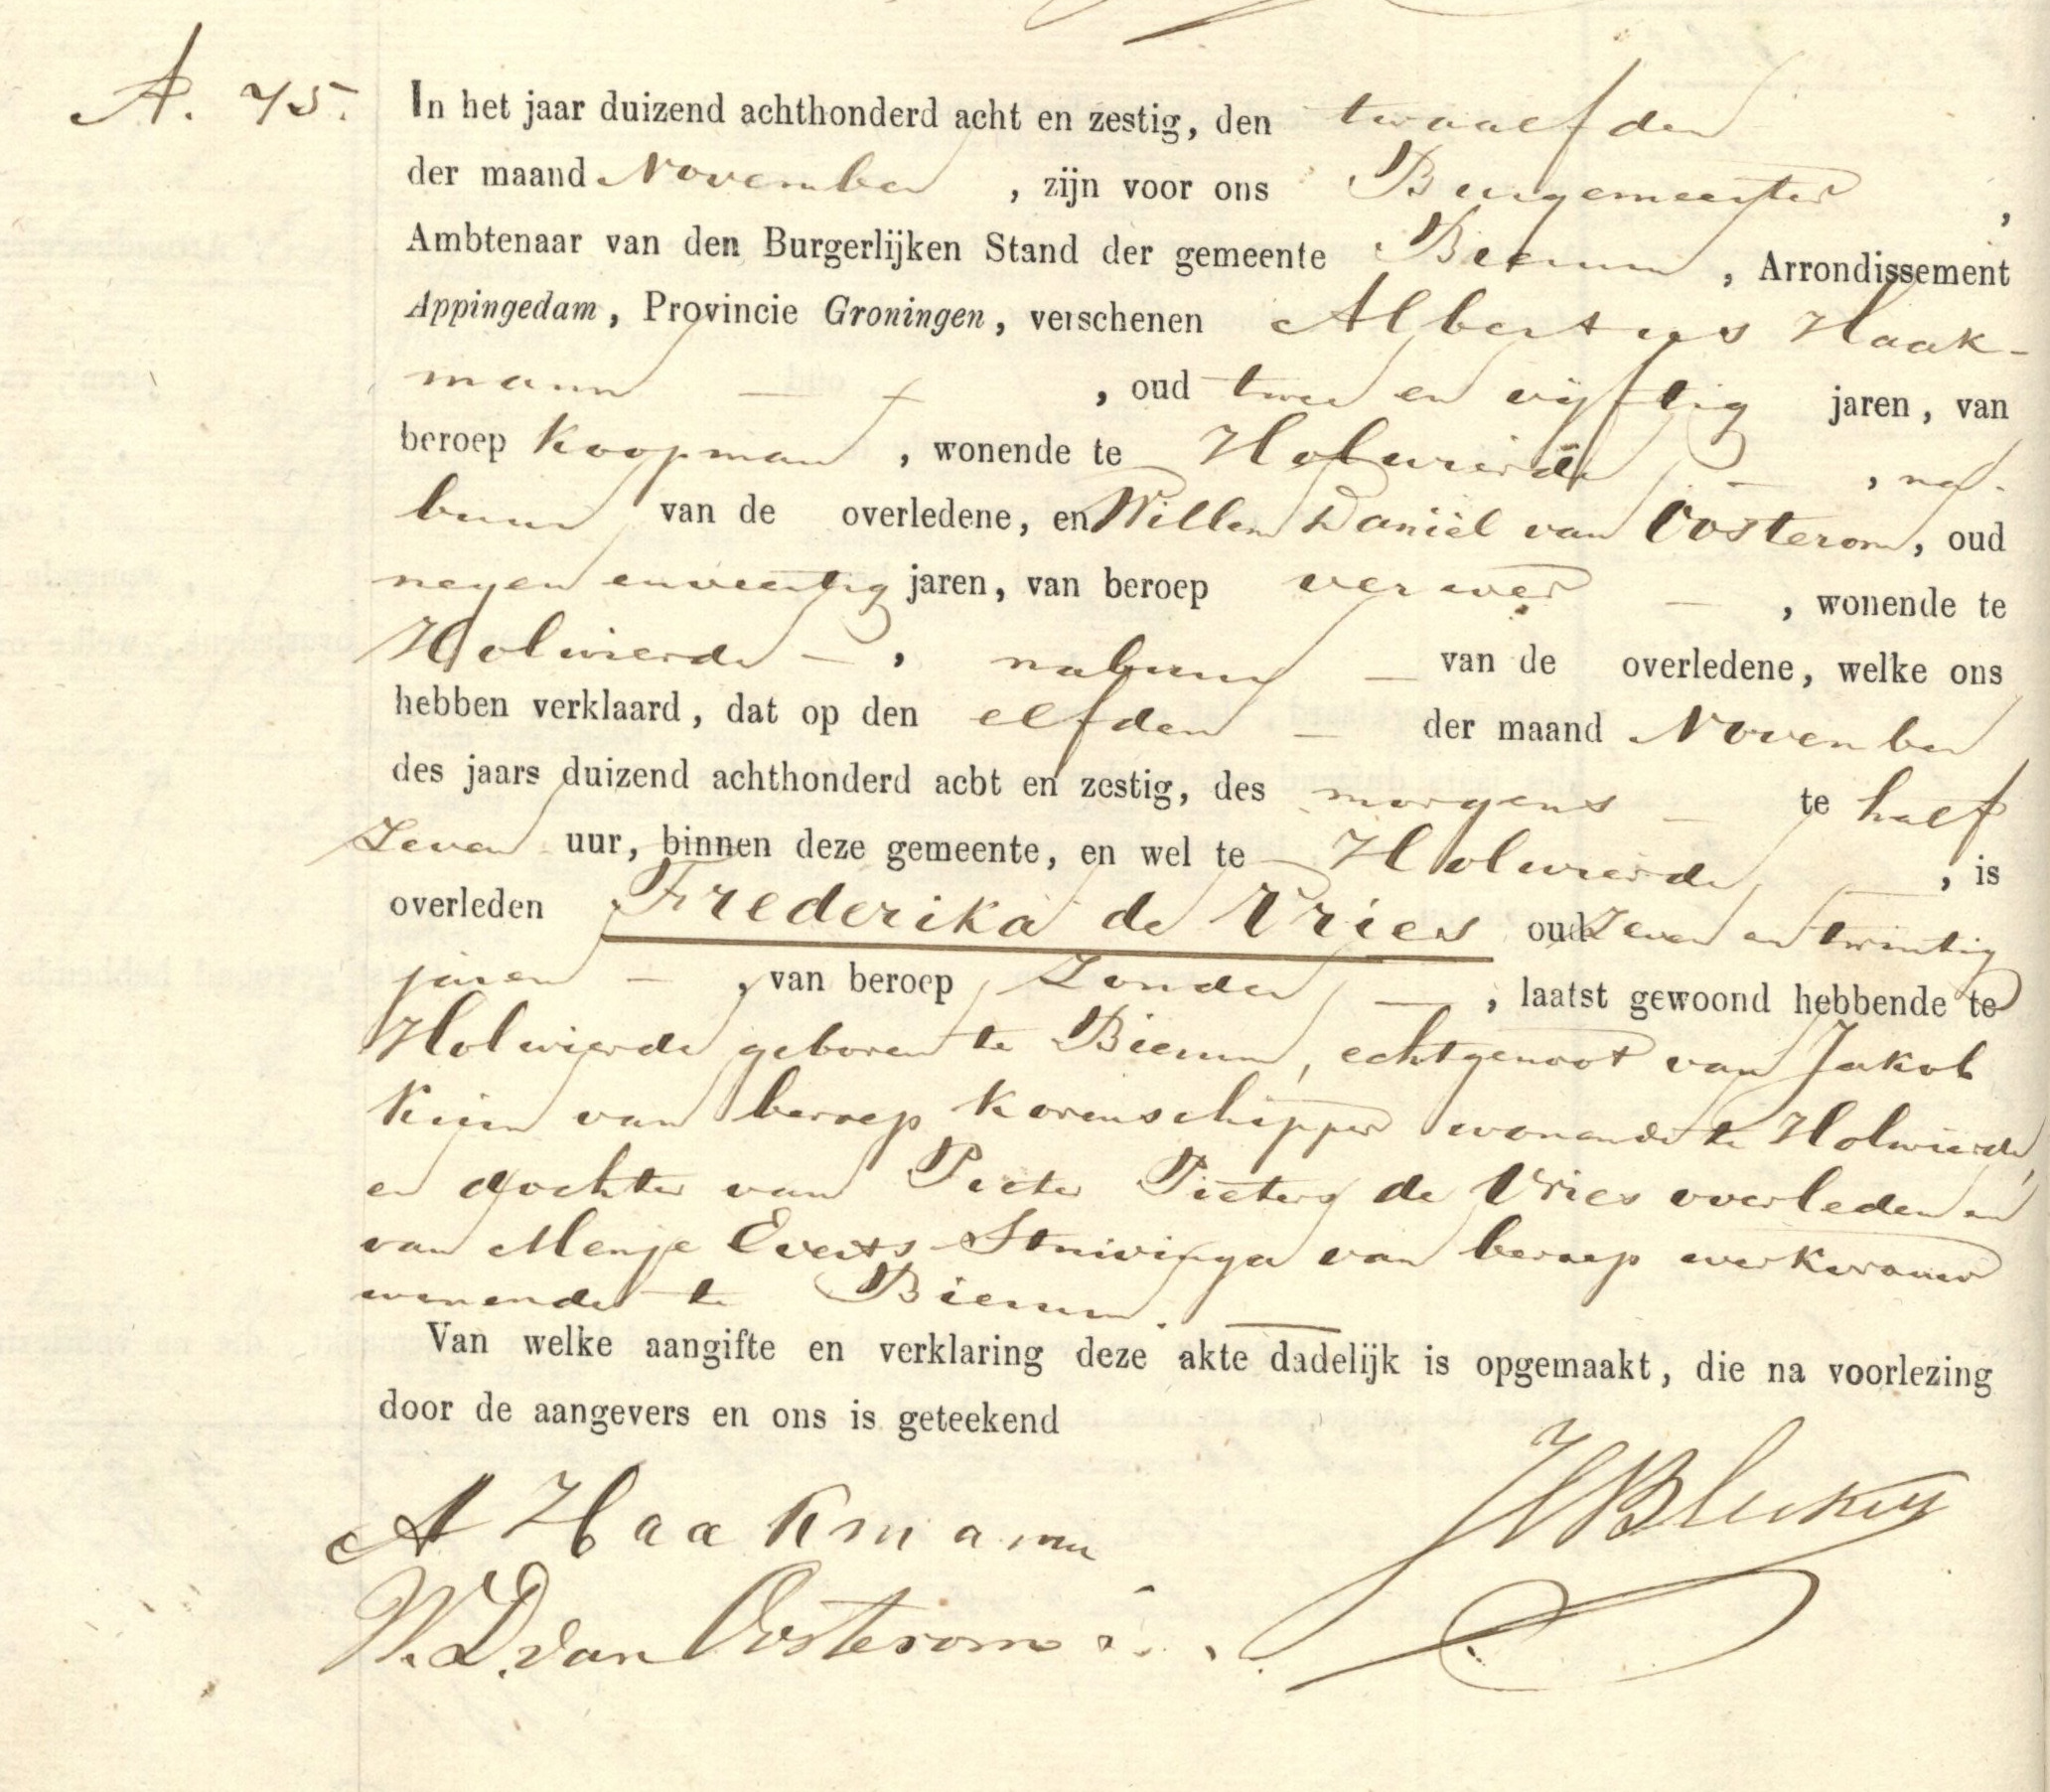 A. 75. In het jaar duizend achthonderd acht en zestig, den twaalfden
der maand November , zijn voor ons Burgemeester ,
Ambtenaar van den Burgerlijken Stand der gemeente Bierum , Arrondissement
Appingedam, Provincie Groningen, verschenen Albertus Haak-
mann — , oud twee en vijftig jaren, van
beroep Koopman , wonende te Holwierde — , na-
buur van de overledene, en Willem Daniël van Oosterom, oud
negen en veertig jaren, van beroep verwer — , wonende te
Holwierde — , nabuur — van de overledene, welke ons
hebben verklaard, dat op den elfden — der maand November
des jaars duizend achthonderd acht en zestig, des morgens — te half
Zeven uur, binnen deze gemeente, en wel te Holwierde — , is
overleden Frederika de Vries oud Zeven en twintig
jaren — , van beroep Zonder — , laatst gewoond hebbende te
Holwierde geboren te Bierum, echtgenoot van Jakob
van beroep Korenschipper wonende te Holwierde,
en dochter van Pieter Pieters de Vries overleden en
van Menje Everts van beroep werkvrouw
wonende te Bierum. —
Van welke aangifte en verklaring deze akte dadelijk is opgemaakt, die na voorlezing
door de aangevers en ons is geteekend
A Haakmann
W. D. van Oosterom